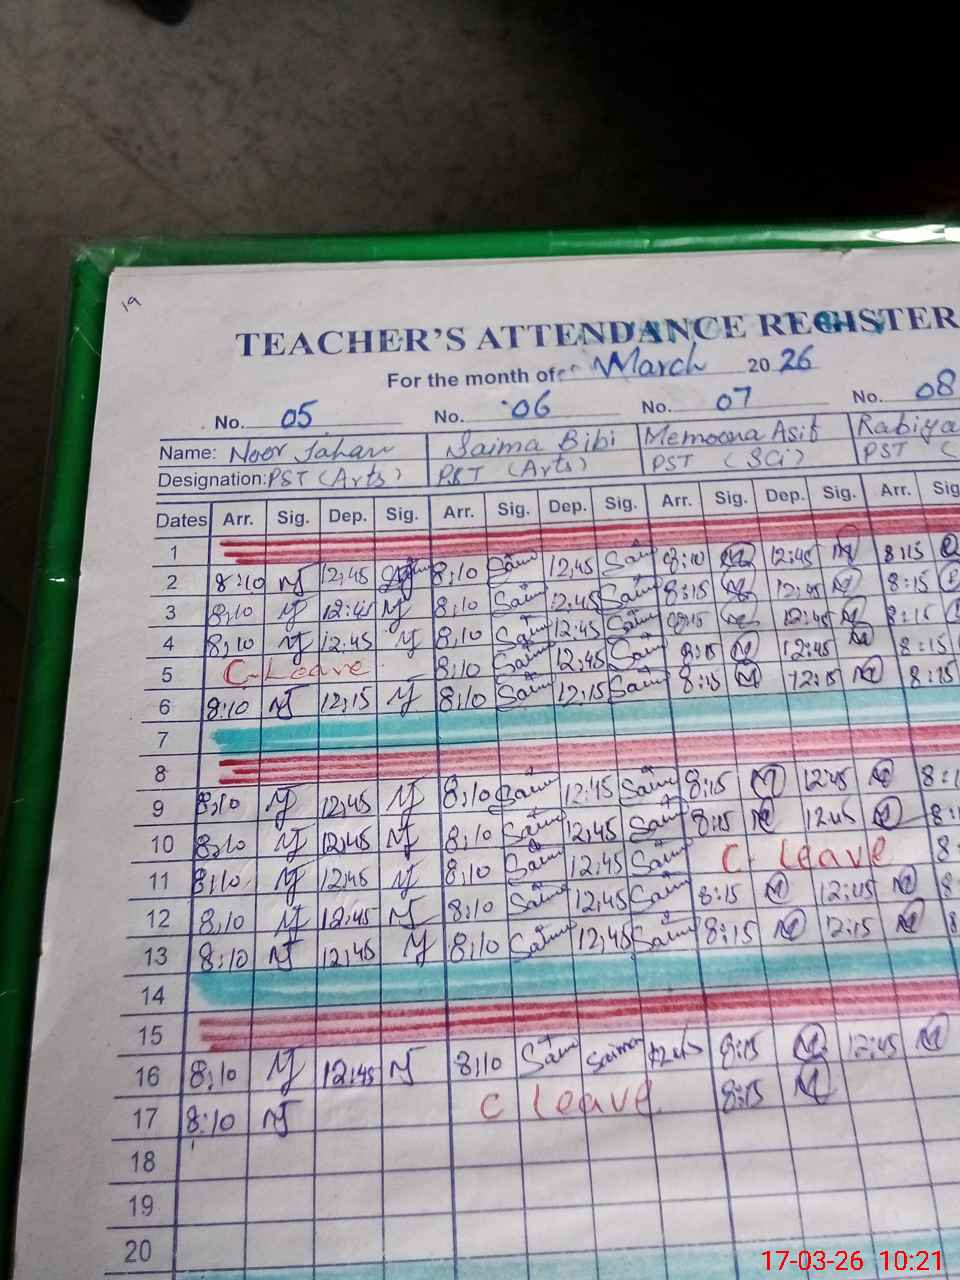 19
TEACHER'S ATTENDANCE REGISTER
For the month of March 2026
No. 05 No. 06 No. 07 No. 08
Name: Noor Jahan Saima Bibi Memoona Asif Rabiya
Designation: PST (Arts) PST (Arts) PST (Sci) PST (
Dates Arr. Sig. Dep. Sig. Arr. Sig. Dep. Sig. Arr. Sig. Dep. Sig. Arr. Sig
1
2 8:10 NJ 12:45 8:10 Saima 12:45 Saima 8:10 M 12:45 M 8:15
3 8:10 NJ 12:45 NJ 8:10 Saima 12:45 Saima 8:15 M 12:45 M 8:15
4 8:10 NJ 12:45 NJ 8:10 Saima 12:45 Saima 8:15 12:45 M 8:15
5 C-Leave 8:10 Saima 12:45 Saima 8:15 M 12:45 M 8:15
6 8:10 NJ 12:15 NJ 8:10 Saima 12:15 Saima 8:15 M 12:15 M 8:15
7
8
9 8:10 NJ 12:45 NJ 8:10 Saima 12:45 Saima 8:15 M 12:45 M
10 8:10 NJ 12:45 NJ 8:10 Saima 12:45 Saima 8:15 M 12:45 M
11 8:10 NJ 12:45 NJ 8:10 Saima 12:45 Saima C. Leave
12 8:10 NJ 12:45 NJ 8:10 Saima 12:45 Saima 8:15 M 12:45 M
13 8:10 NJ 12:45 NJ 8:10 Saima 12:45 Saima 8:15 M 12:15 M
14
15
16 8:10 NJ 12:45 NJ 8:10 Saima Saima 12:45 8:15 M 12:45 M
17 8:10 NJ C leave 8:15 M
18
19
20
17-03-26 10:21